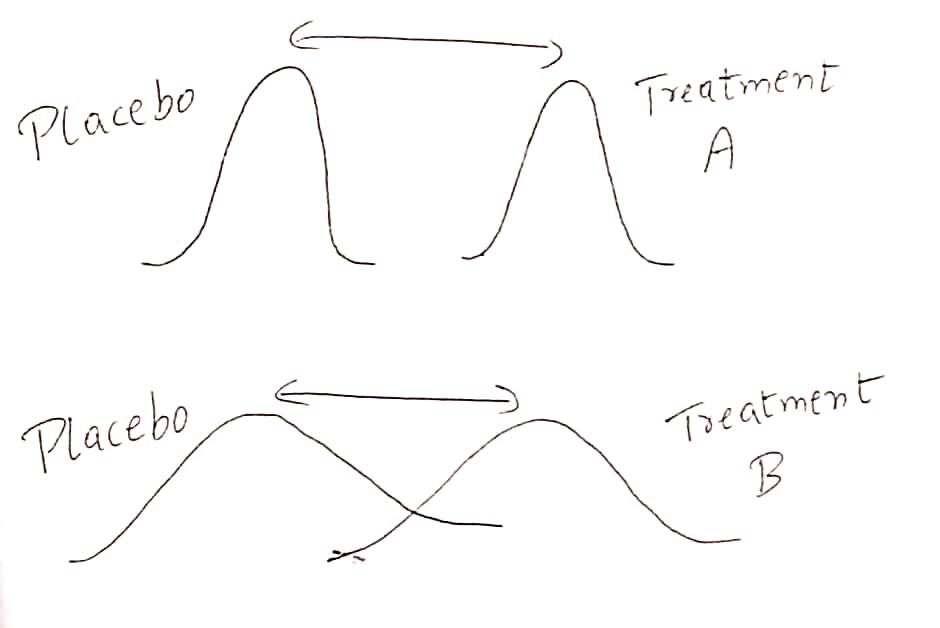 Placebo
Treatment
A
Placebo
Treatment
B